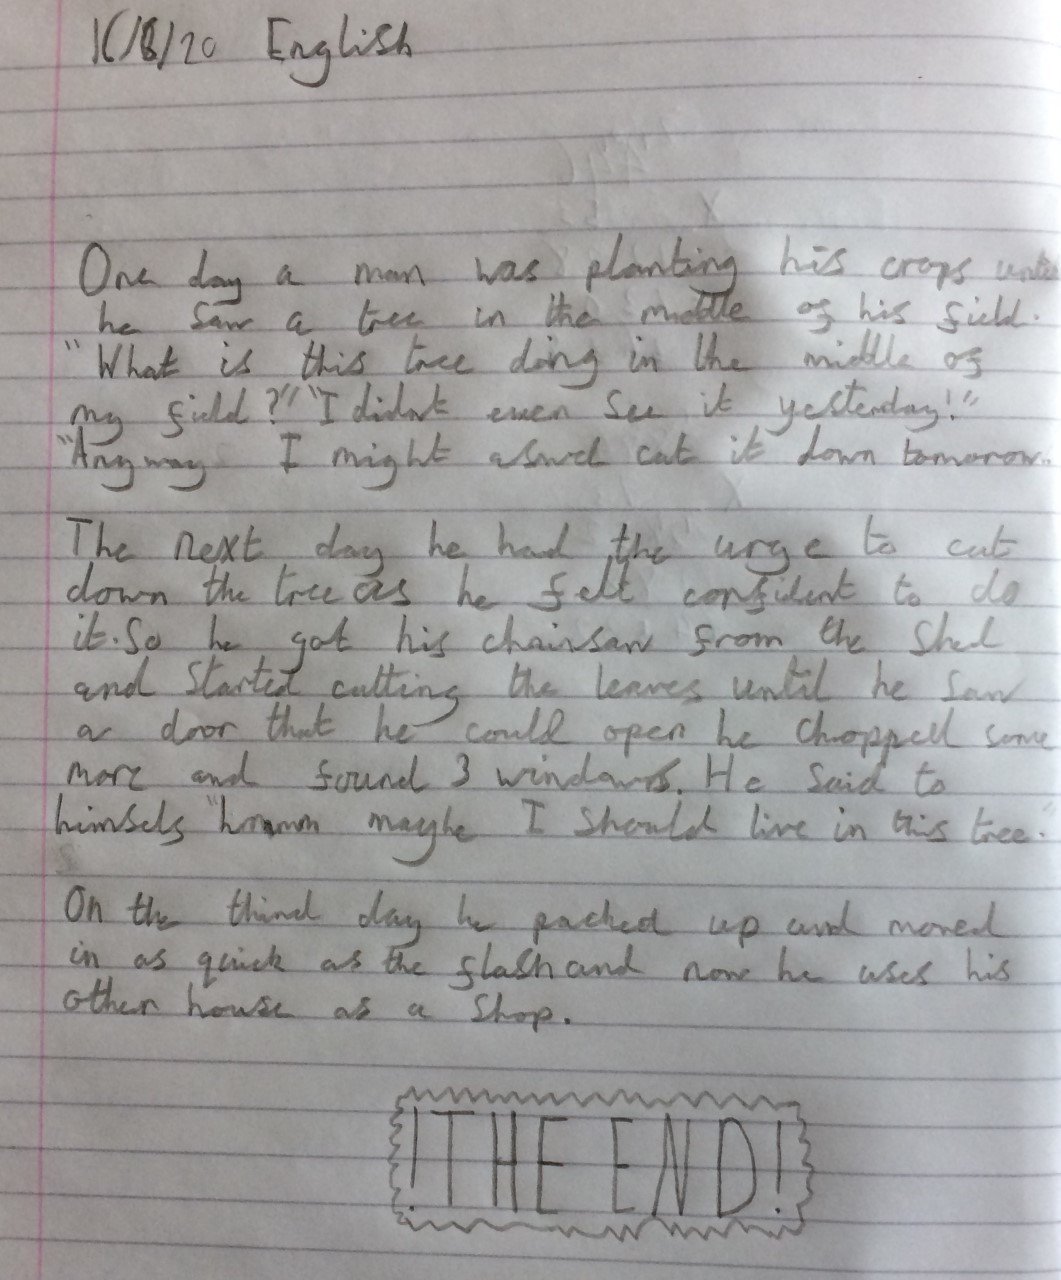 16/8/20 English
One day a man was planting his crops until
he saw a tree in the middle of his field.
"What is this tree ding in the middle of
my field?" "I didnt even see it yesterday!"
"Any way I might aswel cut it down tomorow.
The next day he had the urge to cut
down the tree as he felt confident to do
it. So he got his chainsaw from the shed
and started cutting the leaves until he saw
a door that he could open he chopped some
more and found 3 windows. He said to
himself "hmmm maybe I should live in this tree.
On the third day he packed up and moved
in as quick as the flash and now he uses his
other house as a shop.
!THE END!